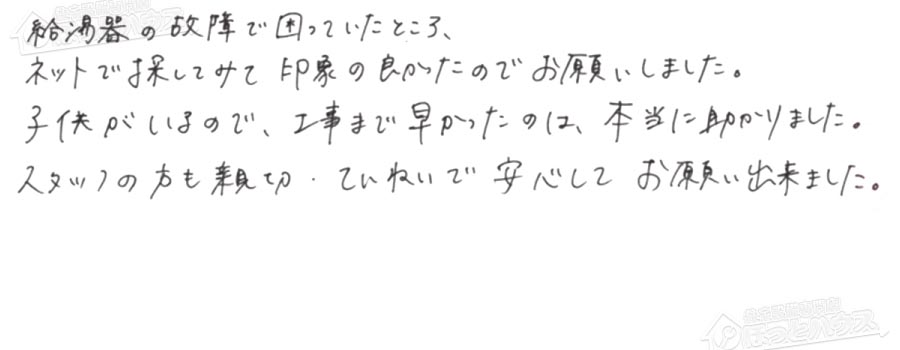 給湯器の故障で困っていたところ、
ネットで探してみて印象の良かったのでお願いしました。
子供がいるので、工事まで早かったのは、本当に助かりました。
スタッフの方も親切・ていねいで安心してお願い出来ました。
ほっとハウス